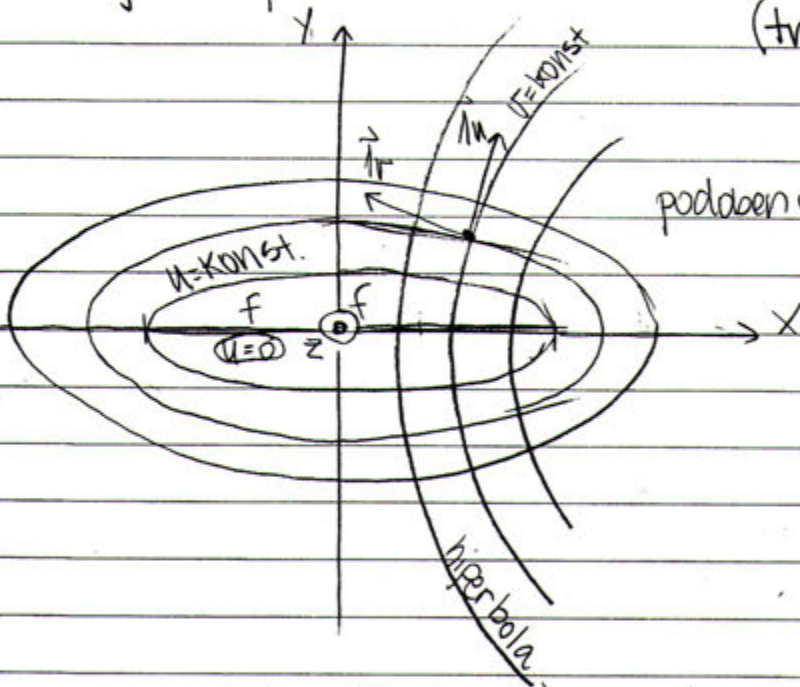 Y
(tr
v=konst
1u
1v
podoben
u=konst.
f
f
X
u=0
z
hiperbola